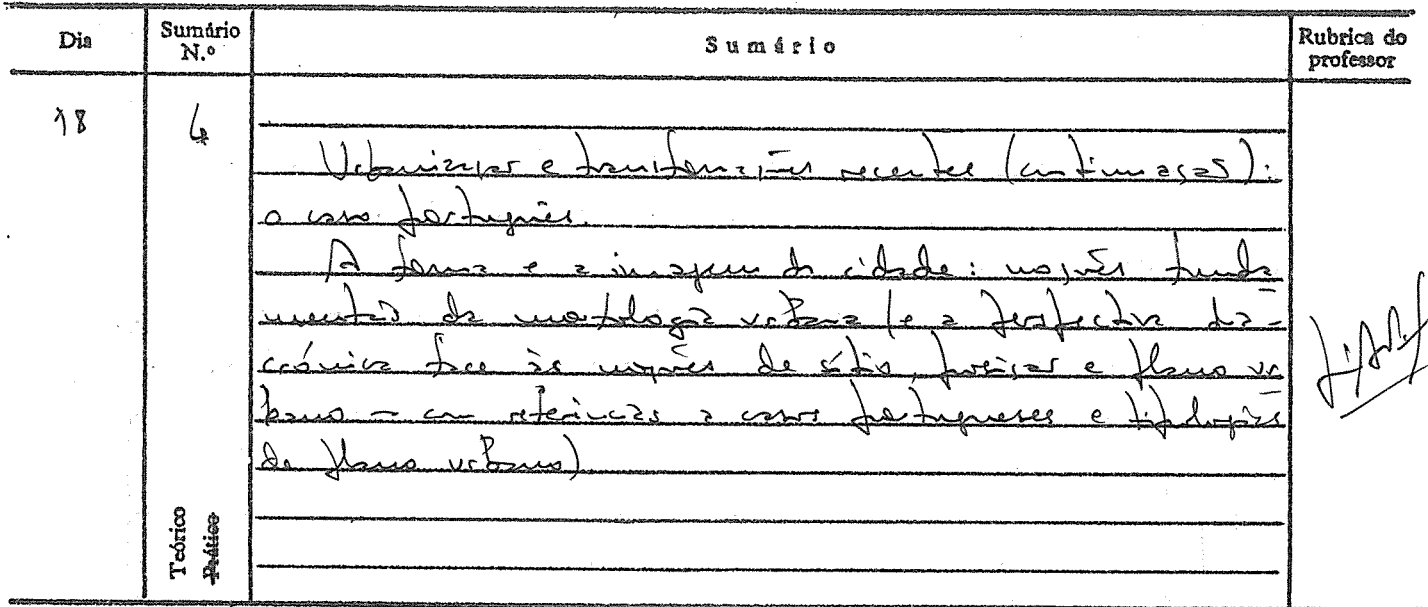 Dia
Sumário N.º
Sumário
Rubrica do professor
18
4
Urbanização e transformações recentes (continuação):
o caso português.
A forma e a imagem da cidade: noções funda
mentais da morfologia urbana (e a perspectiva dia-
crónica face às noções de sítio, posição e plano ur
bano – com referências a casos portugueses e tipologias
de plano urbano)
Teórico
Prático